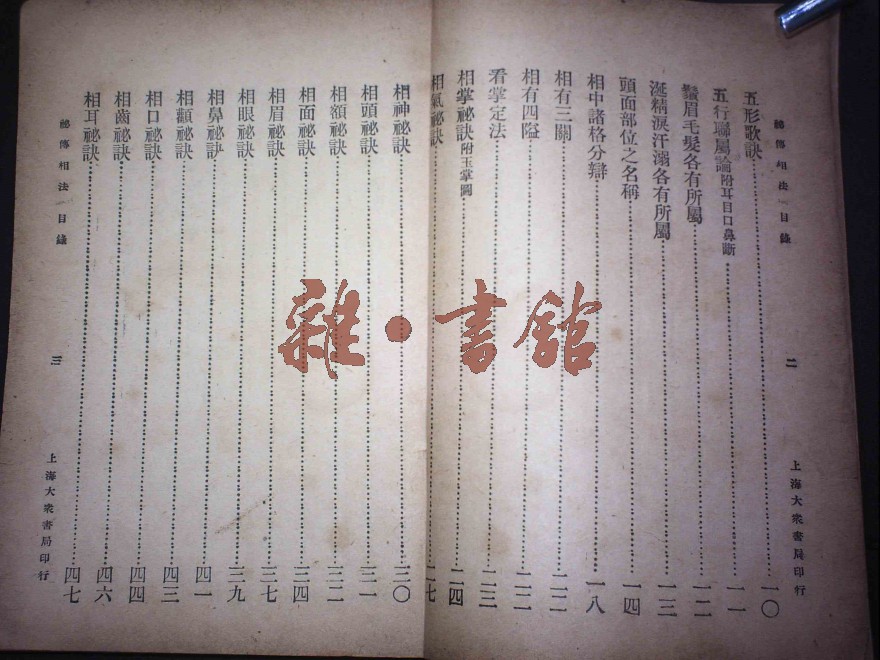 祕傳相法 目錄
二
上海大衆書局印行
五形歌訣一〇
五行聯屬論附耳目口鼻斷一一
鬚眉毛髮各有所屬一二
涎精淚汗溺各有所屬一三
頭面部位之名稱一四
相中諸格分辯一八
相有三關二二
相有四隘二二
看掌定法二三
相掌祕訣附玉掌圖二四
相氣祕訣二七
相神祕訣三〇
相頭祕訣三一
相額祕訣三二
相面祕訣三四
相眉祕訣三七
相眼祕訣三九
相鼻祕訣四一
相顴祕訣四三
相口祕訣四四
相齒祕訣四六
相耳祕訣四七
祕傳相法 目錄
三
上海大衆書局印行
雜·書館